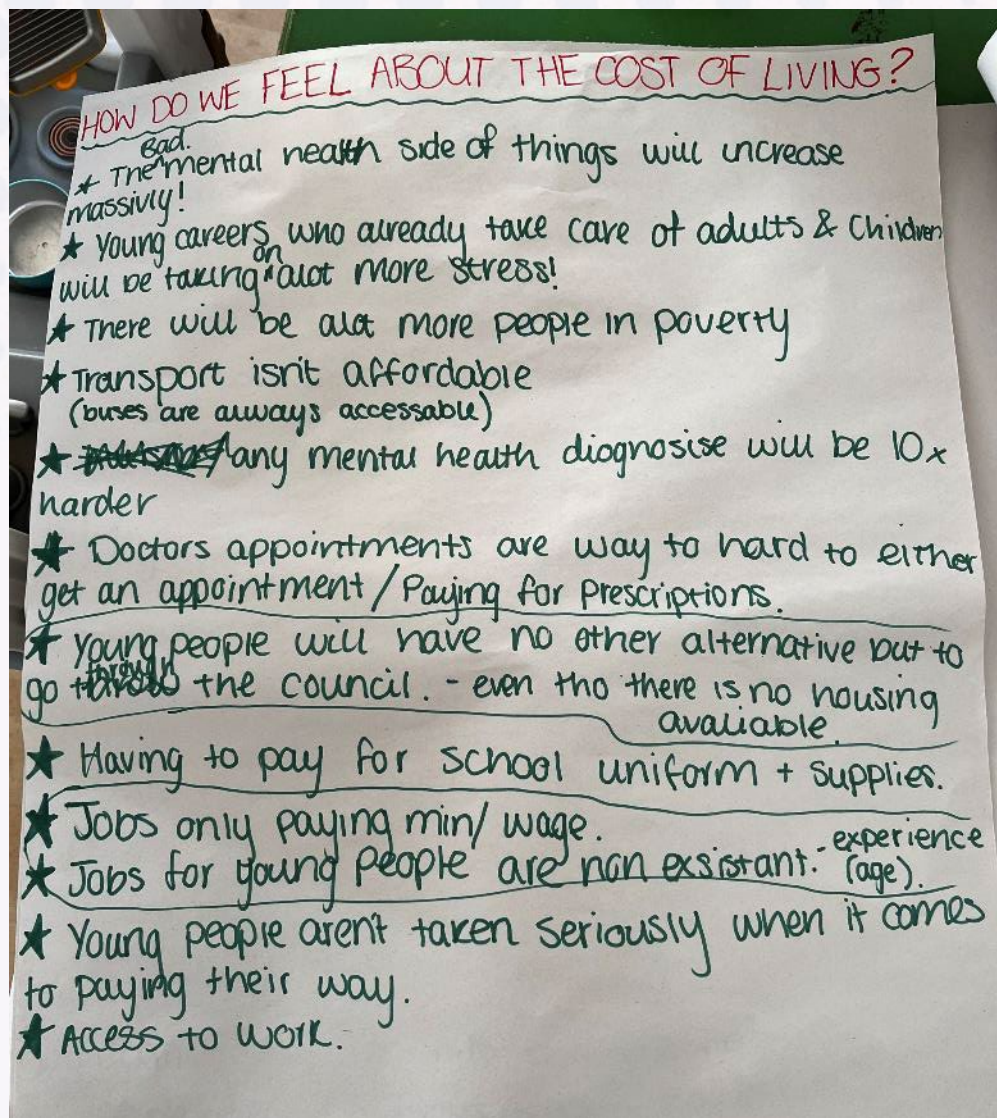 HOW DO WE FEEL ABOUT THE COST OF LIVING?
Bad.
★ The mental health side of things will increase
massivly!
★ Young careers who already take care of adults & Children
will be taking on alot more stress!
★ There will be alot more people in poverty
★ Transport isn't affordable
(buses are always accessable)
★ any mental health diagnosise will be 10x
harder
★ Doctors appointments are way to hard to either
get an appointment / Paying for Prescriptions.
★ Young people will have no other alternative but to
go through the council. - even tho there is no housing
avaliable.
★ Having to pay for school uniform + supplies.
★ Jobs only paying min/ wage.
★ Jobs for young people are non exsistant. - experience
(age).
★ Young people arent taken seriously when it comes
to paying their way.
★ Access to work.